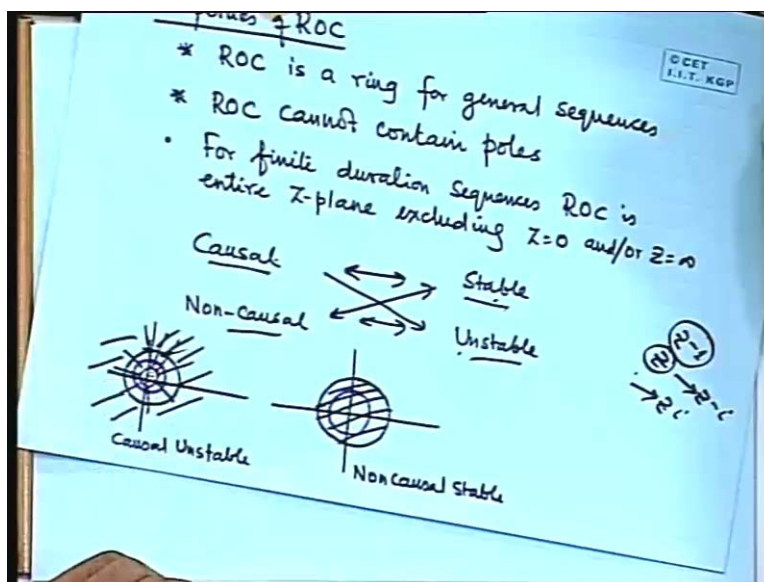 of ROC
© CET
I.I.T. KGP
* ROC is a ring for general sequences
* ROC cannot contain poles
• For finite duration sequences ROC is
entire Z-plane excluding Z=0 and/or Z=∞
Causal
Stable
Non-Causal
Unstable
Causal Unstable
Noncausal Stable